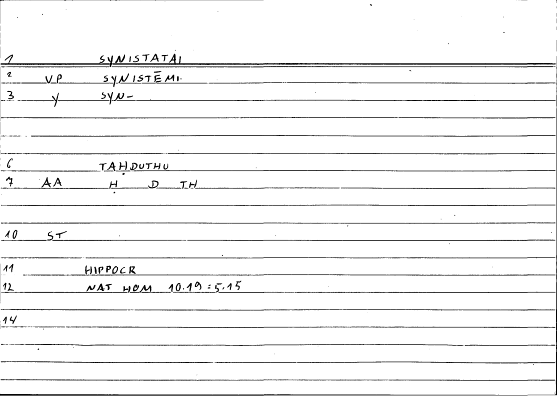 1 SYNISTATAI
2 VP SYNISTĒMI
3 Y SYN-
6 TAḤDUTHU
7 AA Ḥ D TH
10 ST
11 HIPPOCR
12 NAT HOM 10.19=5.15
14